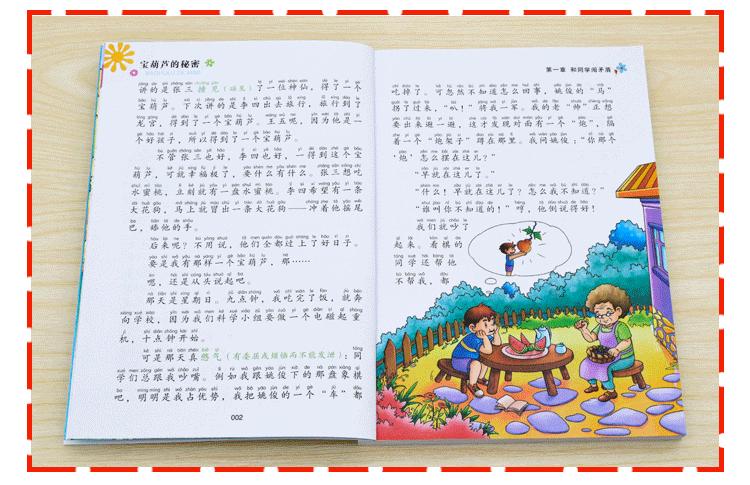 宝葫芦的秘密
讲的是张三撞见（碰见）了一位神仙，得了一个
宝葫芦。下次讲的是李四出去旅行，旅行到了
龙宫，得到了一个宝葫芦。王五呢，因为他是一
个好孩子，所以得到了一个宝葫芦。
不管张三也好，李四也好，一得到这个宝
葫芦，可就幸福极了，要什么有什么。张三想吃
水蜜桃，立刻就有一盘水蜜桃。李四希望有一条
大花狗，马上就冒出一条大花狗——冲着他摇尾
巴，舔他的手。
后来呢？不用说，他们全都过上了好日子。
要是我有那样一个宝葫芦，那……
嗯，还是从头说起吧。
那天是星期日。九点钟，我吃完了饭，就奔
向学校，因为我们科学小组要做一个电磁起重
机，十点钟开始。
可是那天真憋气（有委屈或烦恼而不能发泄）：同
学们总跟我吵嘴。例如我跟姚俊下的那盘象棋
吧，明明是我占优势，我把姚俊的一个“车”都
002
第一章 和同学闹矛盾
吃掉了。可忽然不知道怎么回事，姚俊的“马”
拐了过来，“叭！”将我一军。我的老“帅”正想
要出来避一避，这才发现对面有一个“炮”，隔
着一个“炮架子”蹲在那里。我问姚俊：“你那个
‘炮’怎么摆在这儿？”
“早就在这儿了。”
“什么！早就在这儿了？怎么我不知道？”
“谁叫你不知道的！”哼，他倒说得好！
我们就吵了
起来。看棋的
同学还帮他
不帮我，都